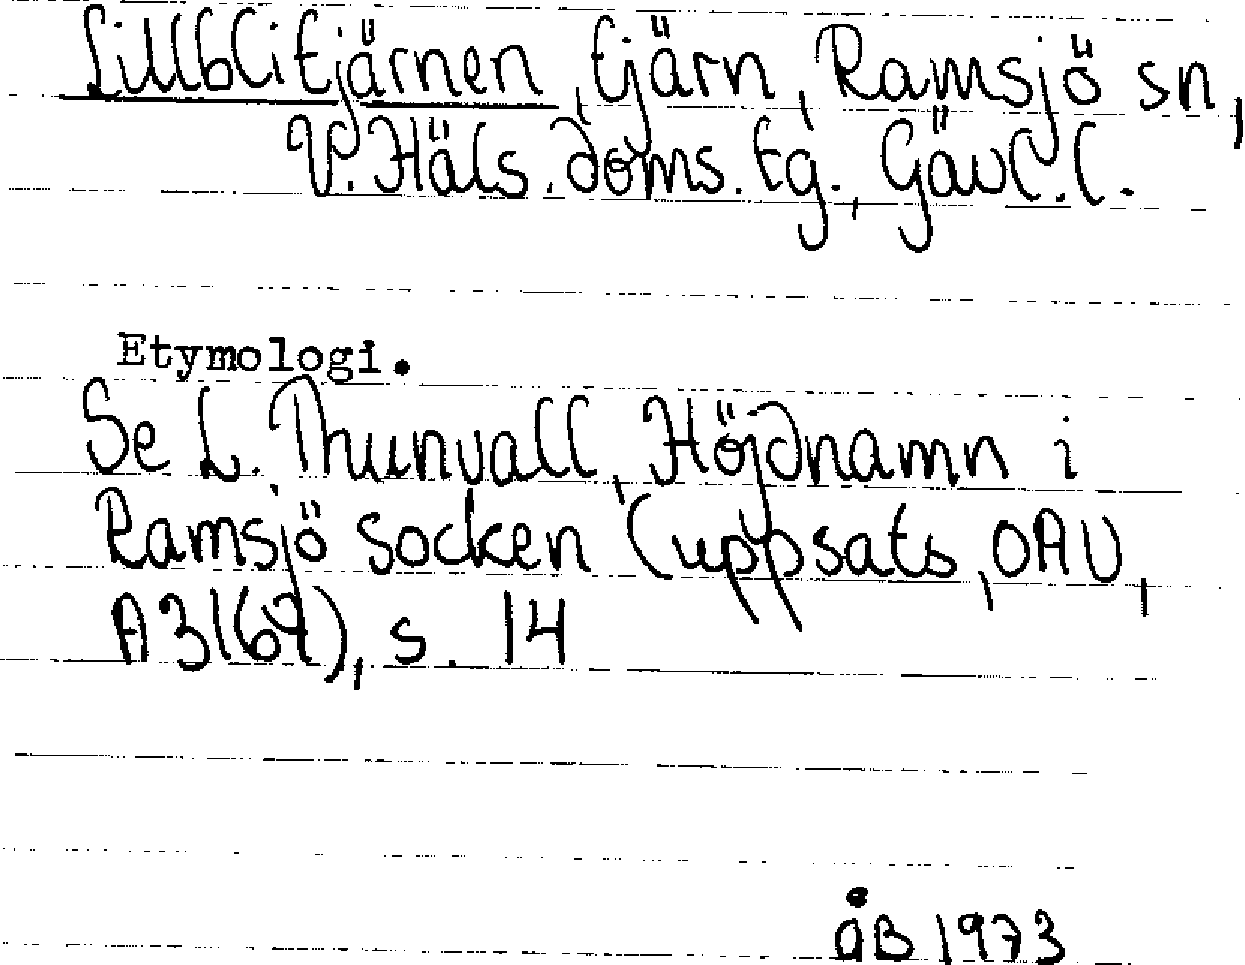 Lillblitjärnen, tjärn, Ramsjö sn,
V. Häls. doms. tg., Gävl. l.
Etymologi.
Se L. Thunvall, Höjdnamn i
Ramsjö socken (uppsats, OAU,
A3167), s. 14
åB 1973